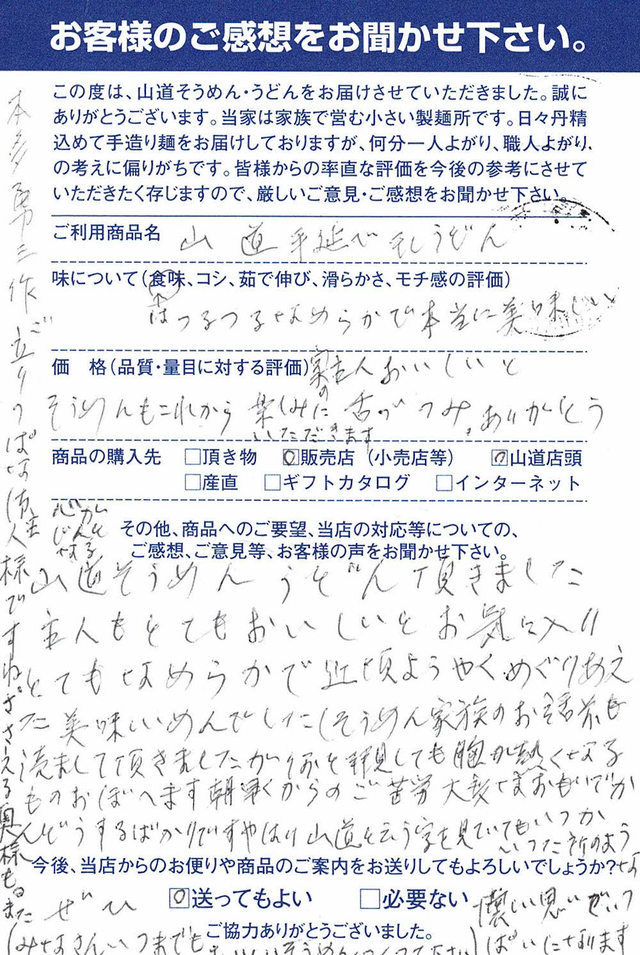 お客様のご感想をお聞かせ下さい。
この度は、山道そうめん・うどんをお届けさせていただきました。誠に
ありがとうございます。当家は家族で営む小さい製麺所です。日々丹精
込めて手造り麺をお届けしておりますが、何分一人よがり、職人よがり、
の考えに偏りがちです。皆様からの率直な評価を今後の参考にさせて
いただきたく存じますので、厳しいご意見・ご感想をお聞かせ下さい。
ご利用商品名 山道手延べ干しうどん
味について(食味、コシ、茹で伸び、滑らかさ、モチ感の評価)
はつるつるなめらかで本当に美味しい
価 格(品質・量目に対する評価) 家主人おいしいと
そうめんもこれから楽しみの 舌づつみ。ありがとう
いただきます
商品の購入先 □頂き物 ☑販売店(小売店等) ☑山道店頭
□産直 □ギフトカタログ □インターネット
その他、商品へのご要望、当店の対応等についての、
ご感想、ご意見等、お客様の声をお聞かせ下さい。
山道そうめんうどん頂きました
主人もとてもおいしいとお気に入り
とてもなめらかで近頃ようやくめぐりあえ
た美味いめんでした(そうめん家族のお話も
読まして頂きました を拝見しても胸が熱くなる
ものおぼへます朝早くからのご苦労大変なおもいでか
んどうするばかりですやはり山道と云う字を見ていてもいつか
いつた所のよう
な
懐しい思いでいつ
ぱいになります
今後、当店からのお便りや商品のご案内をお送りしてもよろしいでしょうか?
ぜひ ☑送ってもよい □必要ない
ご協力ありがとうございました。
(みなさんいつまでもおいしいそうめんつくって下さい)
本多勇三作
りっぱな 主人様ですねささえる奥様もまた
心がじんとする